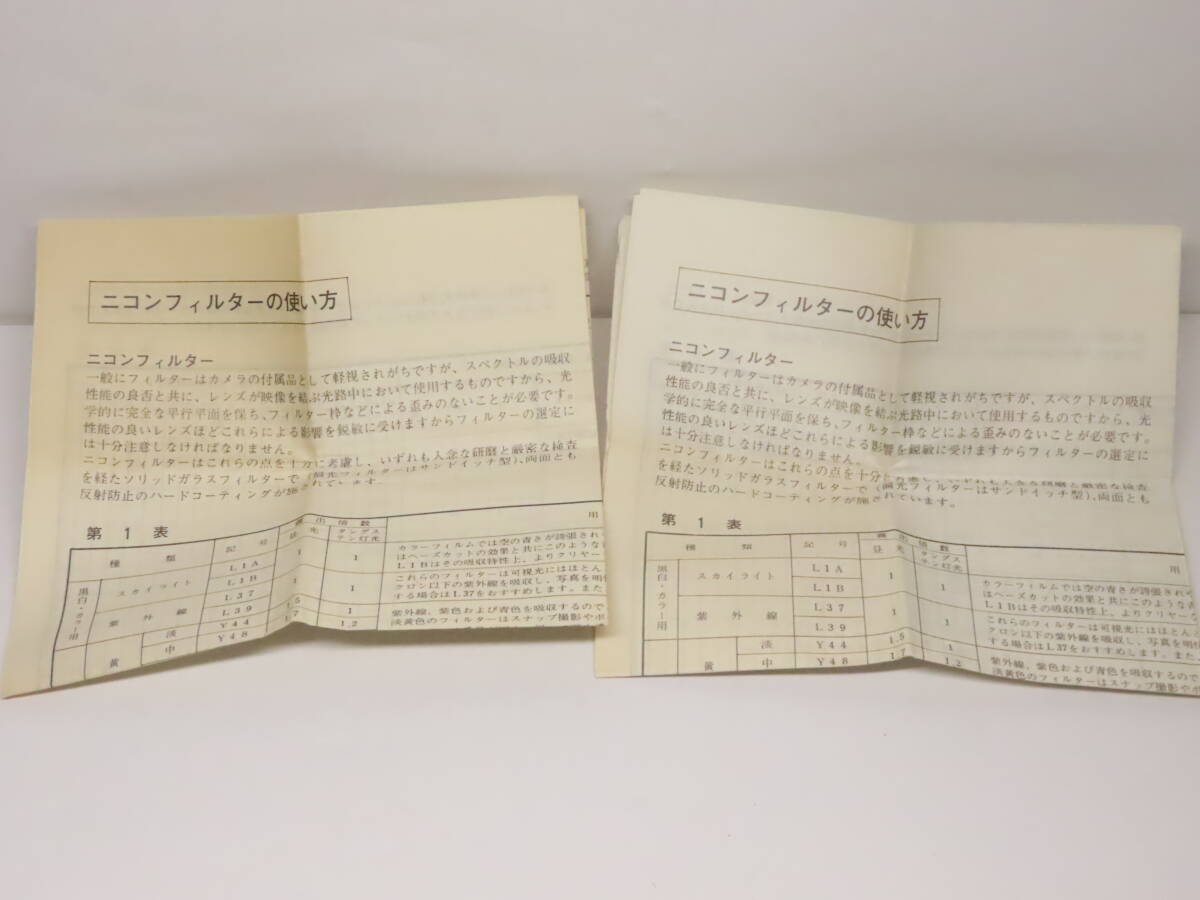 ニコンフィルターの使い方
ニコンフィルター
一般にフィルターはカメラの付属品として軽視されがちですが、スペクトルの吸収
性能の良否と共に、レンズが映像を結ぶ光路中において使用するものですから、光
学的に完全な平行平面を保ち、フィルター枠などによる歪みのないことが必要です。
性能の良いレンズほどこれらによる影響を鋭敏に受けますからフィルターの選定に
は十分注意しなければなりません。
ニコンフィルターはこれらの点を十分に考慮し、いずれも入念な研磨と厳密な検査
を経たソリッドガラスフィルターで(偏光フィルターはサンドイッチ型)、両面とも
反射防止のハードコーティングが施されています。
第1表
種類 記号 露出倍数 用
昼光 タングステン灯光
黒白・カラー用
スカイライト L1A 1 1 カラーフィルムでは空の青さが誇張され
L1B はヘーズカットの効果と共にこのような
L1Bはその吸収特性上、よりクリヤー
紫外線 L37 1 1 これらのフィルターは可視光にはほとん
L39 クロン以下の紫外線を吸収し、写真を明
する場合はL37をおすすめします。また
淡 Y44 1.5 1 紫外線、紫色および青色を吸収するので
黄 中 Y48 1.7 1.2 淡黄色のフィルターはスナップ撮影や
ニコンフィルターの使い方
ニコンフィルター
一般にフィルターはカメラの付属品として軽視されがちですが、スペクトルの吸収
性能の良否と共に、レンズが映像を結ぶ光路中において使用するものですから、光
学的に完全な平行平面を保ち、フィルター枠などによる歪みのないことが必要です。
性能の良いレンズほどこれらによる影響を鋭敏に受けますからフィルターの選定に
は十分注意しなければなりません。
ニコンフィルターはこれらの点を十分
を経たソリッドガラスフィルターで(偏光フィルターはサンドイッチ型)、両面とも
反射防止のハードコーティングが施されています。
第1表
種類 記号 露出倍数 用
昼光 タングステン灯光
黒白・カラー用
スカイライト L1A 1 1 カラーフィルムでは空の青さが誇張され
L1B はヘーズカットの効果と共にこのような
L1Bはその吸収特性上、よりクリヤー
紫外線 L37 1 1 これらのフィルターは可視光にはほとん
L39 クロン以下の紫外線を吸収し、写真を明
する場合はL37をおすすめします。また
淡 Y44 1.5 1 紫外線、紫色および青色を吸収するので
黄 中 Y48 1.7 1.2 淡黄色のフィルターはスナップ撮影や